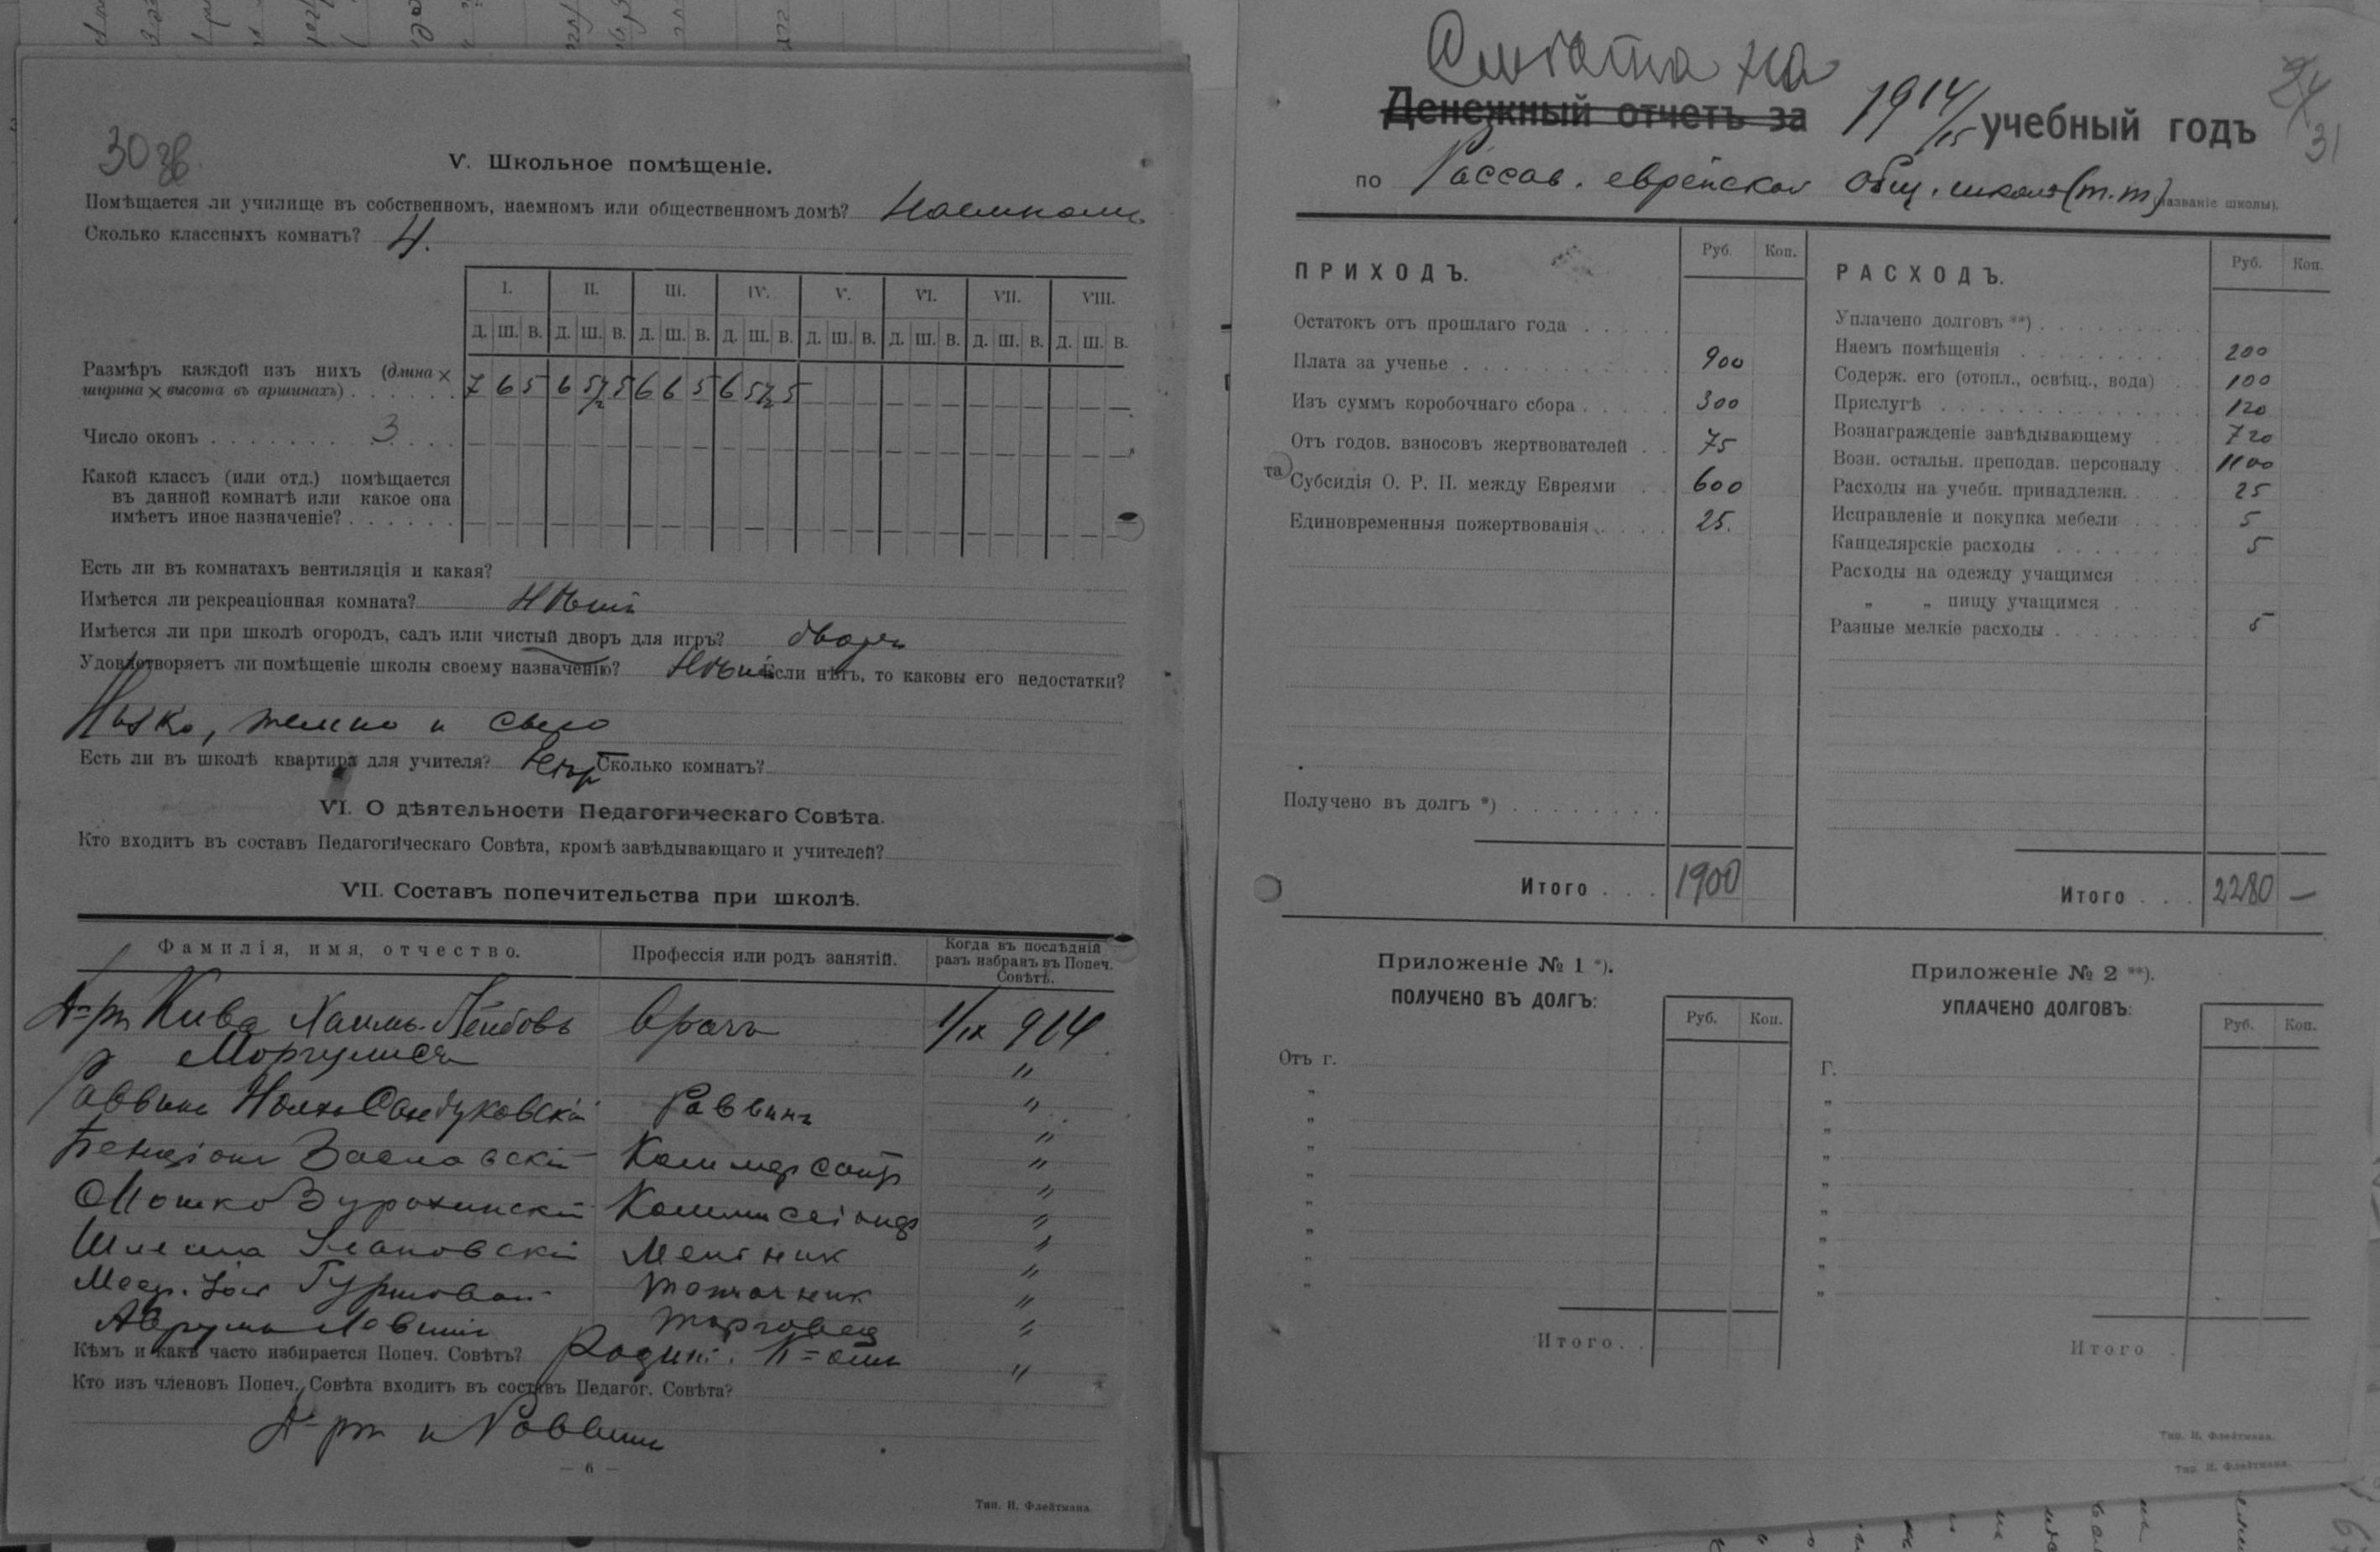 30 об.
V. Школьное помѣщеніе.
Помѣщается ли училище въ собственномъ, наемномъ или общественномъ домѣ? Наемномъ
Сколько классныхъ комнатъ? 4.
I. II. III. IV. V. VI. VII. VIII.
Д. Ш. В. Д. Ш. В. Д. Ш. В. Д. Ш. В. Д. Ш. В. Д. Ш. В. Д. Ш. В. Д. Ш. В.
Размѣръ каждой изъ нихъ (длина ×
ширина × высота въ аршинахъ) 7 6 5 6 5½ 5 6 6 5 6 5½ 5
Число оконъ 3
Какой классъ (или отд.) помѣщается
въ данной комнатѣ или какое она
имѣетъ иное назначеніе?
Есть ли въ комнатахъ вентиляція и какая?
Имѣется ли рекреаціонная комната? Нѣтъ
Имѣется ли при школѣ огородъ, садъ или чистый дворъ для игръ? дворъ
Удовлетворяетъ ли помѣщеніе школы своему назначенію? Нѣтъ Если нѣтъ, то каковы его недостатки?
Низко, темно и сыро
Есть ли въ школѣ квартира для учителя? Сколько комнатъ?
VI. О дѣятельности Педагогическаго Совѣта.
Кто входитъ въ составъ Педагогическаго Совѣта, кромѣ завѣдывающаго и учителей?
VII. Составъ попечительства при школѣ.
Фамилія, имя, отчество. Профессія или родъ занятій. Когда въ послѣдній
разъ избранъ въ Попеч.
Совѣтъ.
Д-ръ Кива Хаимъ-Лейбовъ Врачъ 1/IX 914
Моргулисъ "
Раввинъ Сандуковскій Раввинъ "
Бенціонъ Заславскій "
Мошко Коммиссіонер "
Шлема "
"
Аврумъ Левинъ торговец "
Кѣмъ и какъ часто избирается Попеч. Совѣтъ?
Кто изъ членовъ Попеч. Совѣта входитъ въ составъ Педагог. Совѣта?
Д-ръ и Раввинъ
— 6 —
Тип. И. Флейтмана
Смѣта на
Денежный отчетъ за 1914/15 учебный годъ
24
31
по Рассав. еврейской общ. школѣ (т.т) (названіе школы).
ПРИХОДЪ. Руб. Коп.
Остатокъ отъ прошлаго года
Плата за ученье 900
Изъ суммъ коробочнаго сбора 300
Отъ годов. взносовъ жертвователей 75
та
Субсидія О. Р. П. между Евреями 600
Единовременныя пожертвованія 25.
Получено въ долгъ *)
Итого 1900
РАСХОДЪ. Руб. Коп.
Уплачено долговъ **)
Наемъ помѣщенія 200
Содерж. его (отопл., освѣщ., вода) 100
Прислугѣ 120
Вознагражденіе завѣдывающему 720
Возн. остальн. преподав. персоналу 1100
Расходы на учебн. принадлежн. 25
Исправленіе и покупка мебели 5
Канцелярскіе расходы 5
Расходы на одежду учащимся
" " пищу учащимся
Разные мелкіе расходы 5
Итого 2280 —
Приложеніе № 1 *).
ПОЛУЧЕНО ВЪ ДОЛГЪ:
Руб. Коп.
Отъ г.
"
"
"
"
"
"
"
"
Итого
Приложеніе № 2 **).
УПЛАЧЕНО ДОЛГОВЪ:
Руб. Коп.
Г.
"
"
"
"
"
"
"
"
Итого
Тип. И. Флейтмана.
Тип. И. Флейтмана.